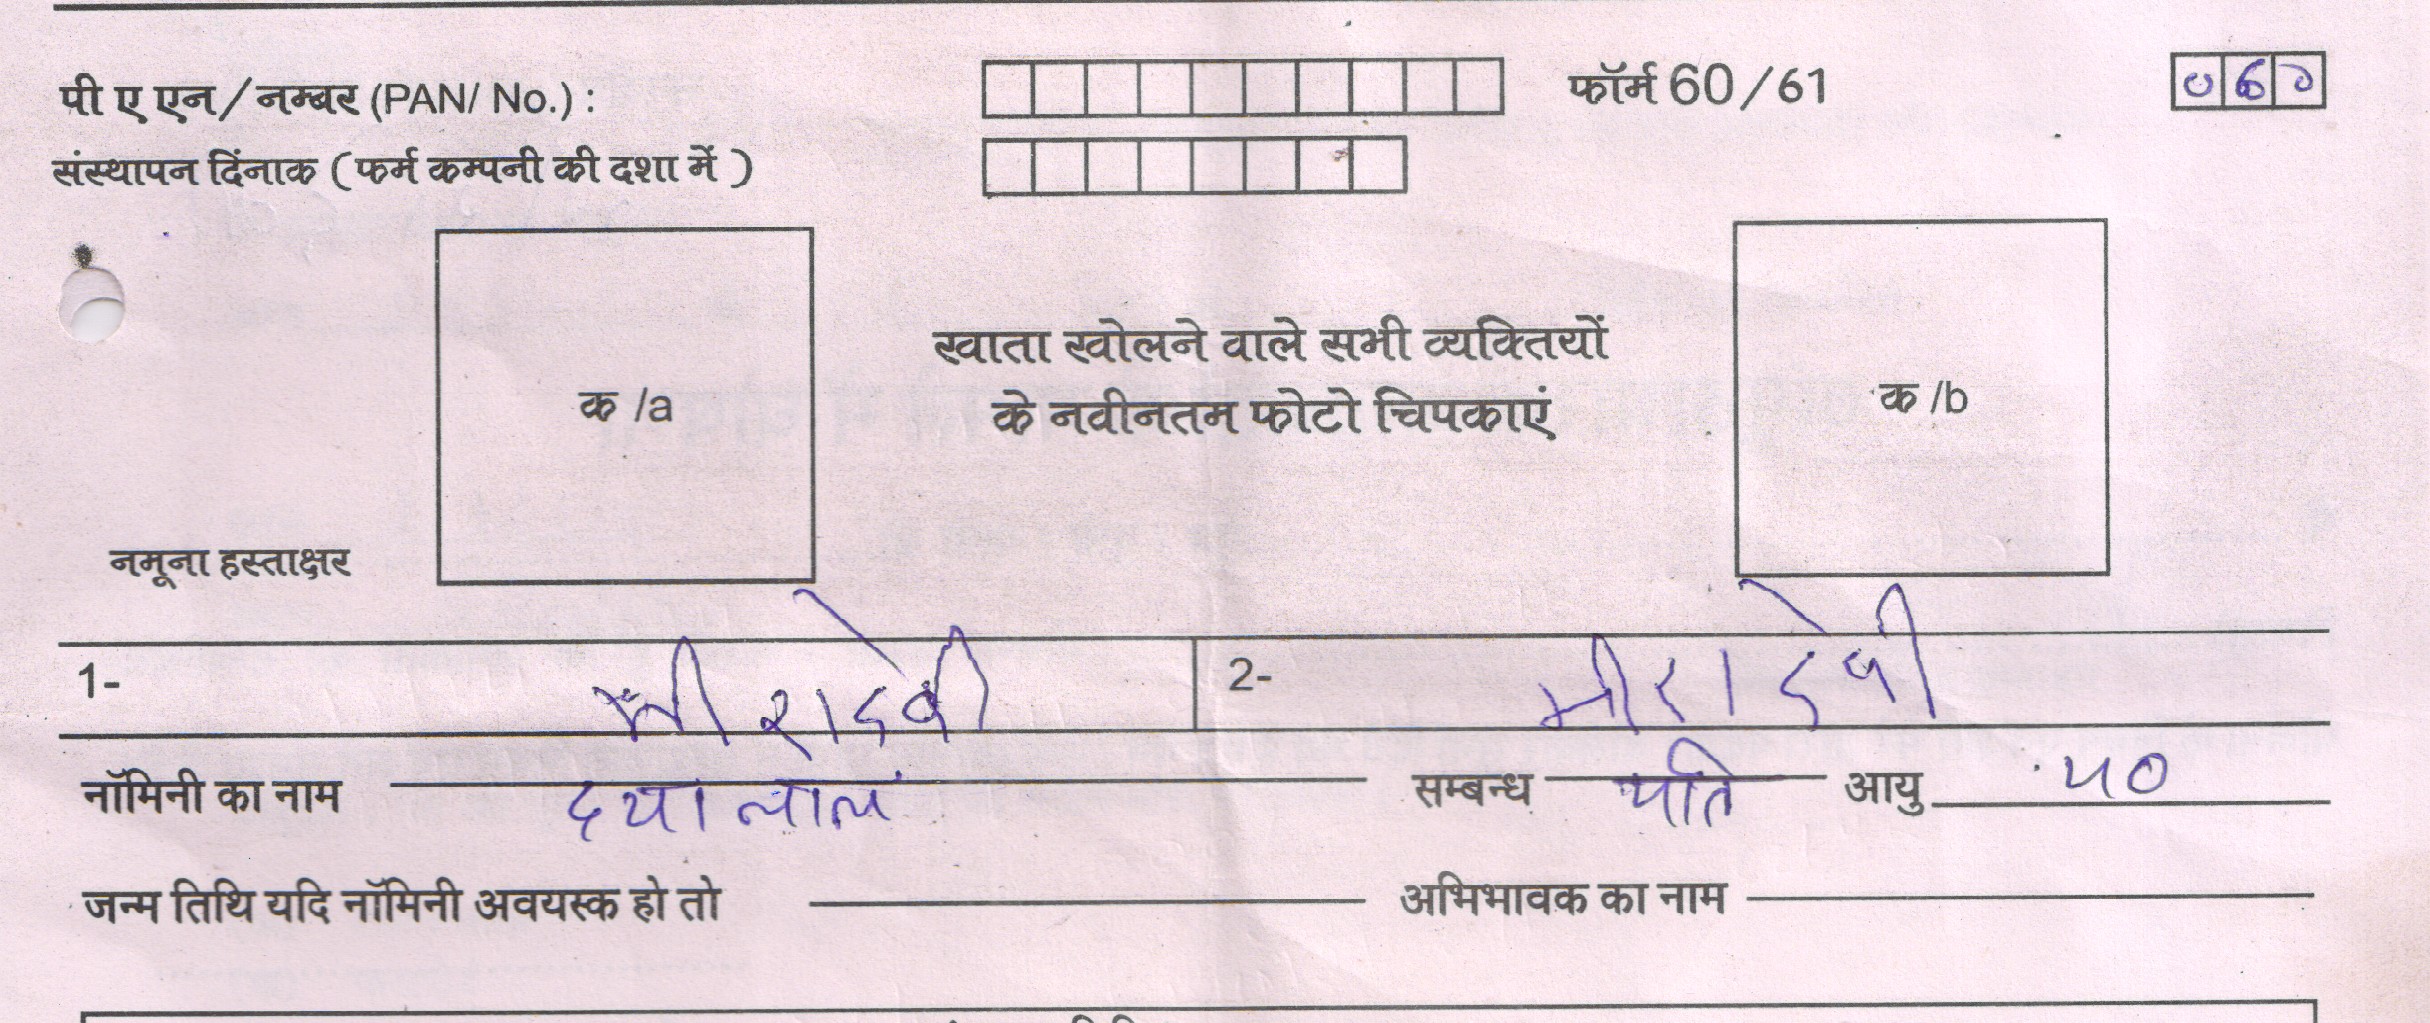 पी ए एन/नम्बर (PAN/ No.) : फॉर्म 60/61 060
संस्थापन दिंनाक ( फर्म कम्पनी की दशा में )
क /a
खाता खोलने वाले सभी व्यक्तियों
के नवीनतम फोटो चिपकाएं
क /b
नमूना हस्ताक्षर
1- मीरादेवी 2- मीरादेवी
नॉमिनी का नाम दयालाल सम्बन्ध पति आयु ५०
जन्म तिथि यदि नॉमिनी अवयस्क हो तो अभिभावक का नाम